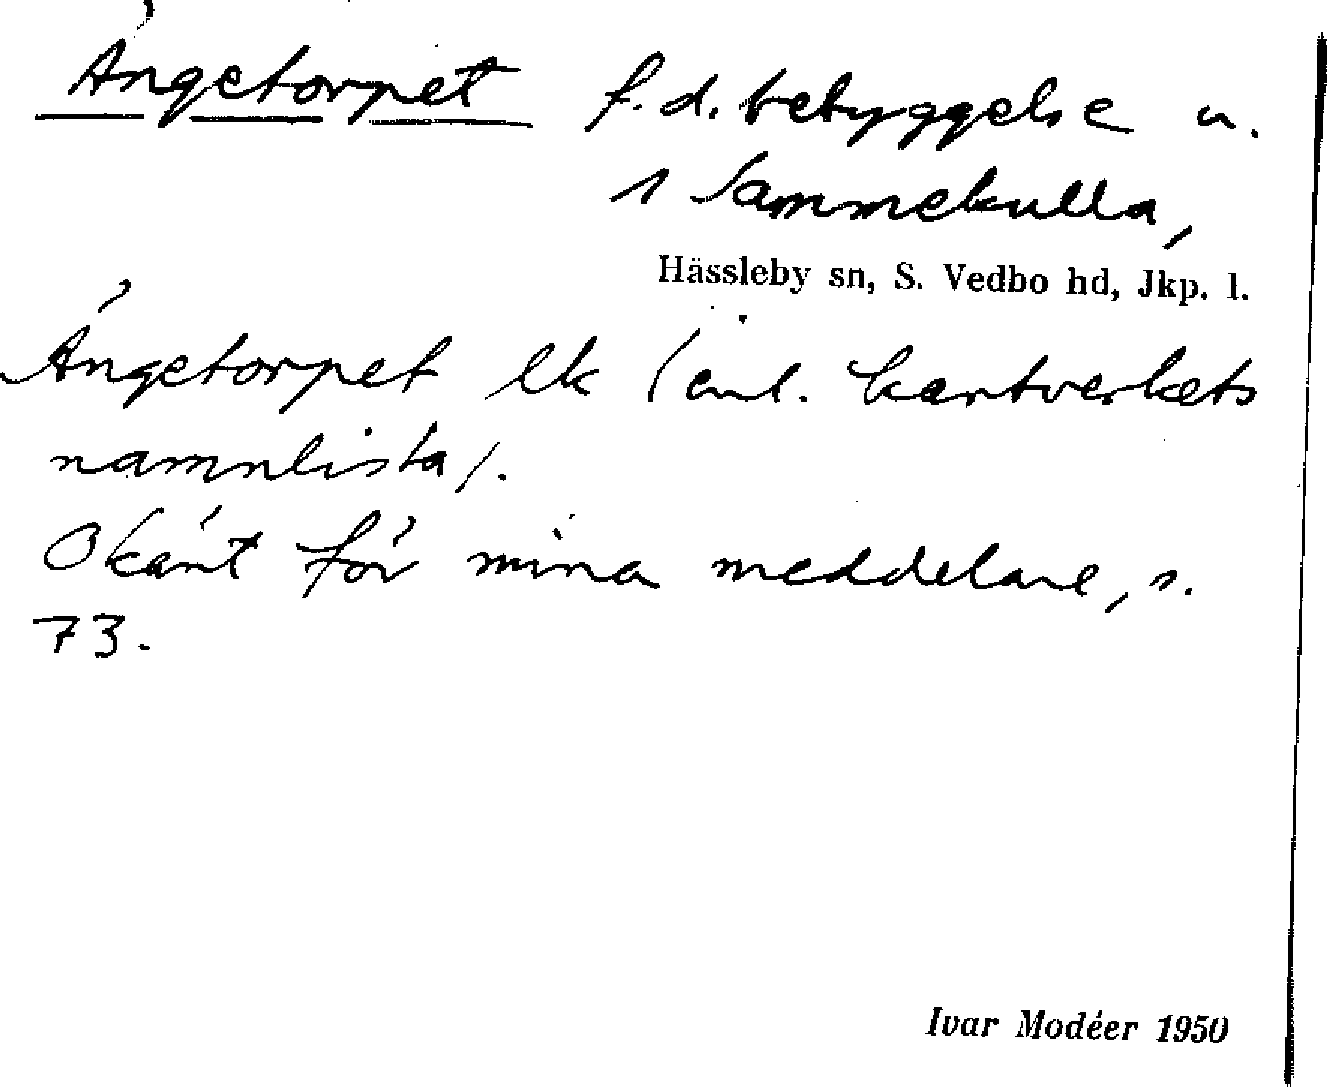 Ängetorpet f.d. bebyggelse u.
1 Sammekulla,
Hässleby sn, S. Vedbo hd, Jkp. l.
Ängetorpet ek (enl. kartverkets
namnlista).
Okänt för mina meddelare, s.
73.
Ivar Modéer 1950